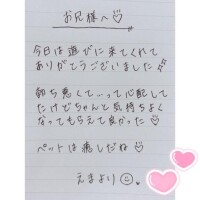 お兄様へ♡
今日は遊びに来てくれて
ありがとうございました
動ち悪くて...って心配して
たけどちゃんと気持ちよく
なってもらえて良かった♡
ペットは癒しだね♡
えまより☺